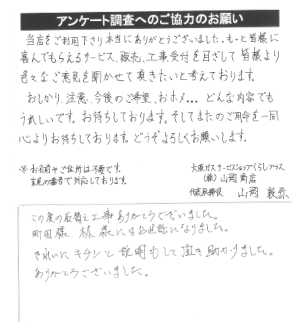 アンケート調査へのご協力のお願い
当店をご利用下さり本当にありがとうございました。もっと皆様に
喜んでもらえるサービス、販売、工事受付を目ざして皆様より
色々なご意見を聞かせて頂きたいと考えております。
おしかり、注意、今後のご希望、おホメ… どんな内容でも
うれしいです。お待ちしております。そしてまたのご用命を一同
心よりお待ちしております。どうぞよろしくお願いします。
※お名前やご住所は不要です。
で対応しております。
大阪ガスサービスショップくらしプラス
(株)山岡商店
代表取締役 山岡
この度の取替え工事ありがとうございました。
町田様、林様にはお世話になりました。
きれいに キチンと 説明もして頂き助かりました。
ありがとうございました。